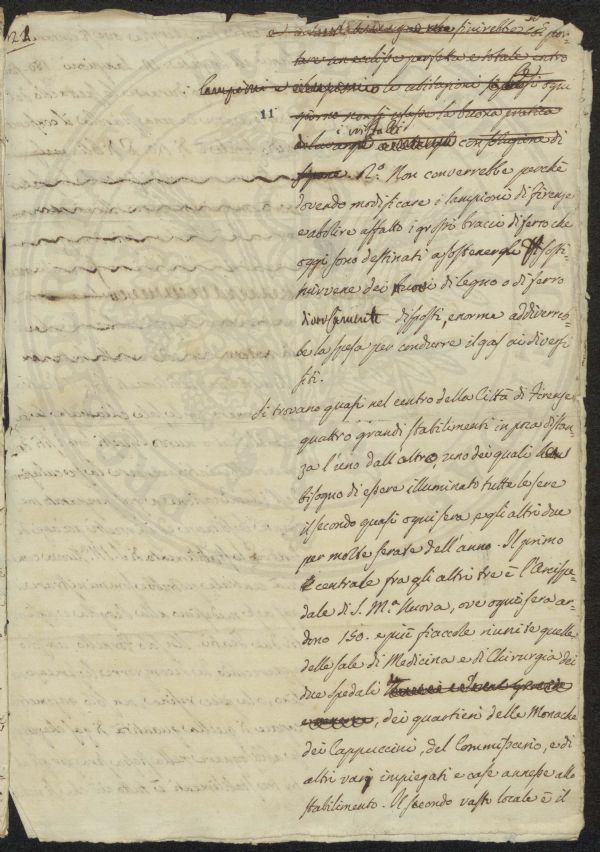 21
si avrebbe
tare un eclisse perfetta e totale entro
Lampioni e le abitazioni se ogni
11
giorno non si usasse la buona pratica
i cristalli
di lavargli con soluzione di
sapone. 2.o Non converrebbe perché
dovendo modificare i lampioni di Firenze
e abolire affatto i grossi bracci di ferro che
oggi sono destinati a sostenergli sosti-
tuirvene dei nuovi di legno o di ferro
diversamente disposti, enorme addiverreb-
be la spesa per condurre il gas ai diversi
siti.
Si trovano quasi nel centro della Città di Firenze
quattro grandi stabilimenti in poca distan-
za l'uno dall'altro, uno dei quali ha
bisogno di essere illuminato tutte le sere
il secondo quasi ogni sera, e gli altri due
per molte serate dell'anno. Il primo
e centrale fra gli altri tre è l'Arcispe-
dale di S. M.a Nuova, ove ogni sera ar-
dono 150. e più fiaccole riunite quelle
delle sale di Medicina e di Chirurgia dei
due spedali
dei quartieri delle Monache
dei Cappuccini, del Commissario, e di
altri varj impiegati e case annesse allo
stabilimento. Il secondo vasto locale è il